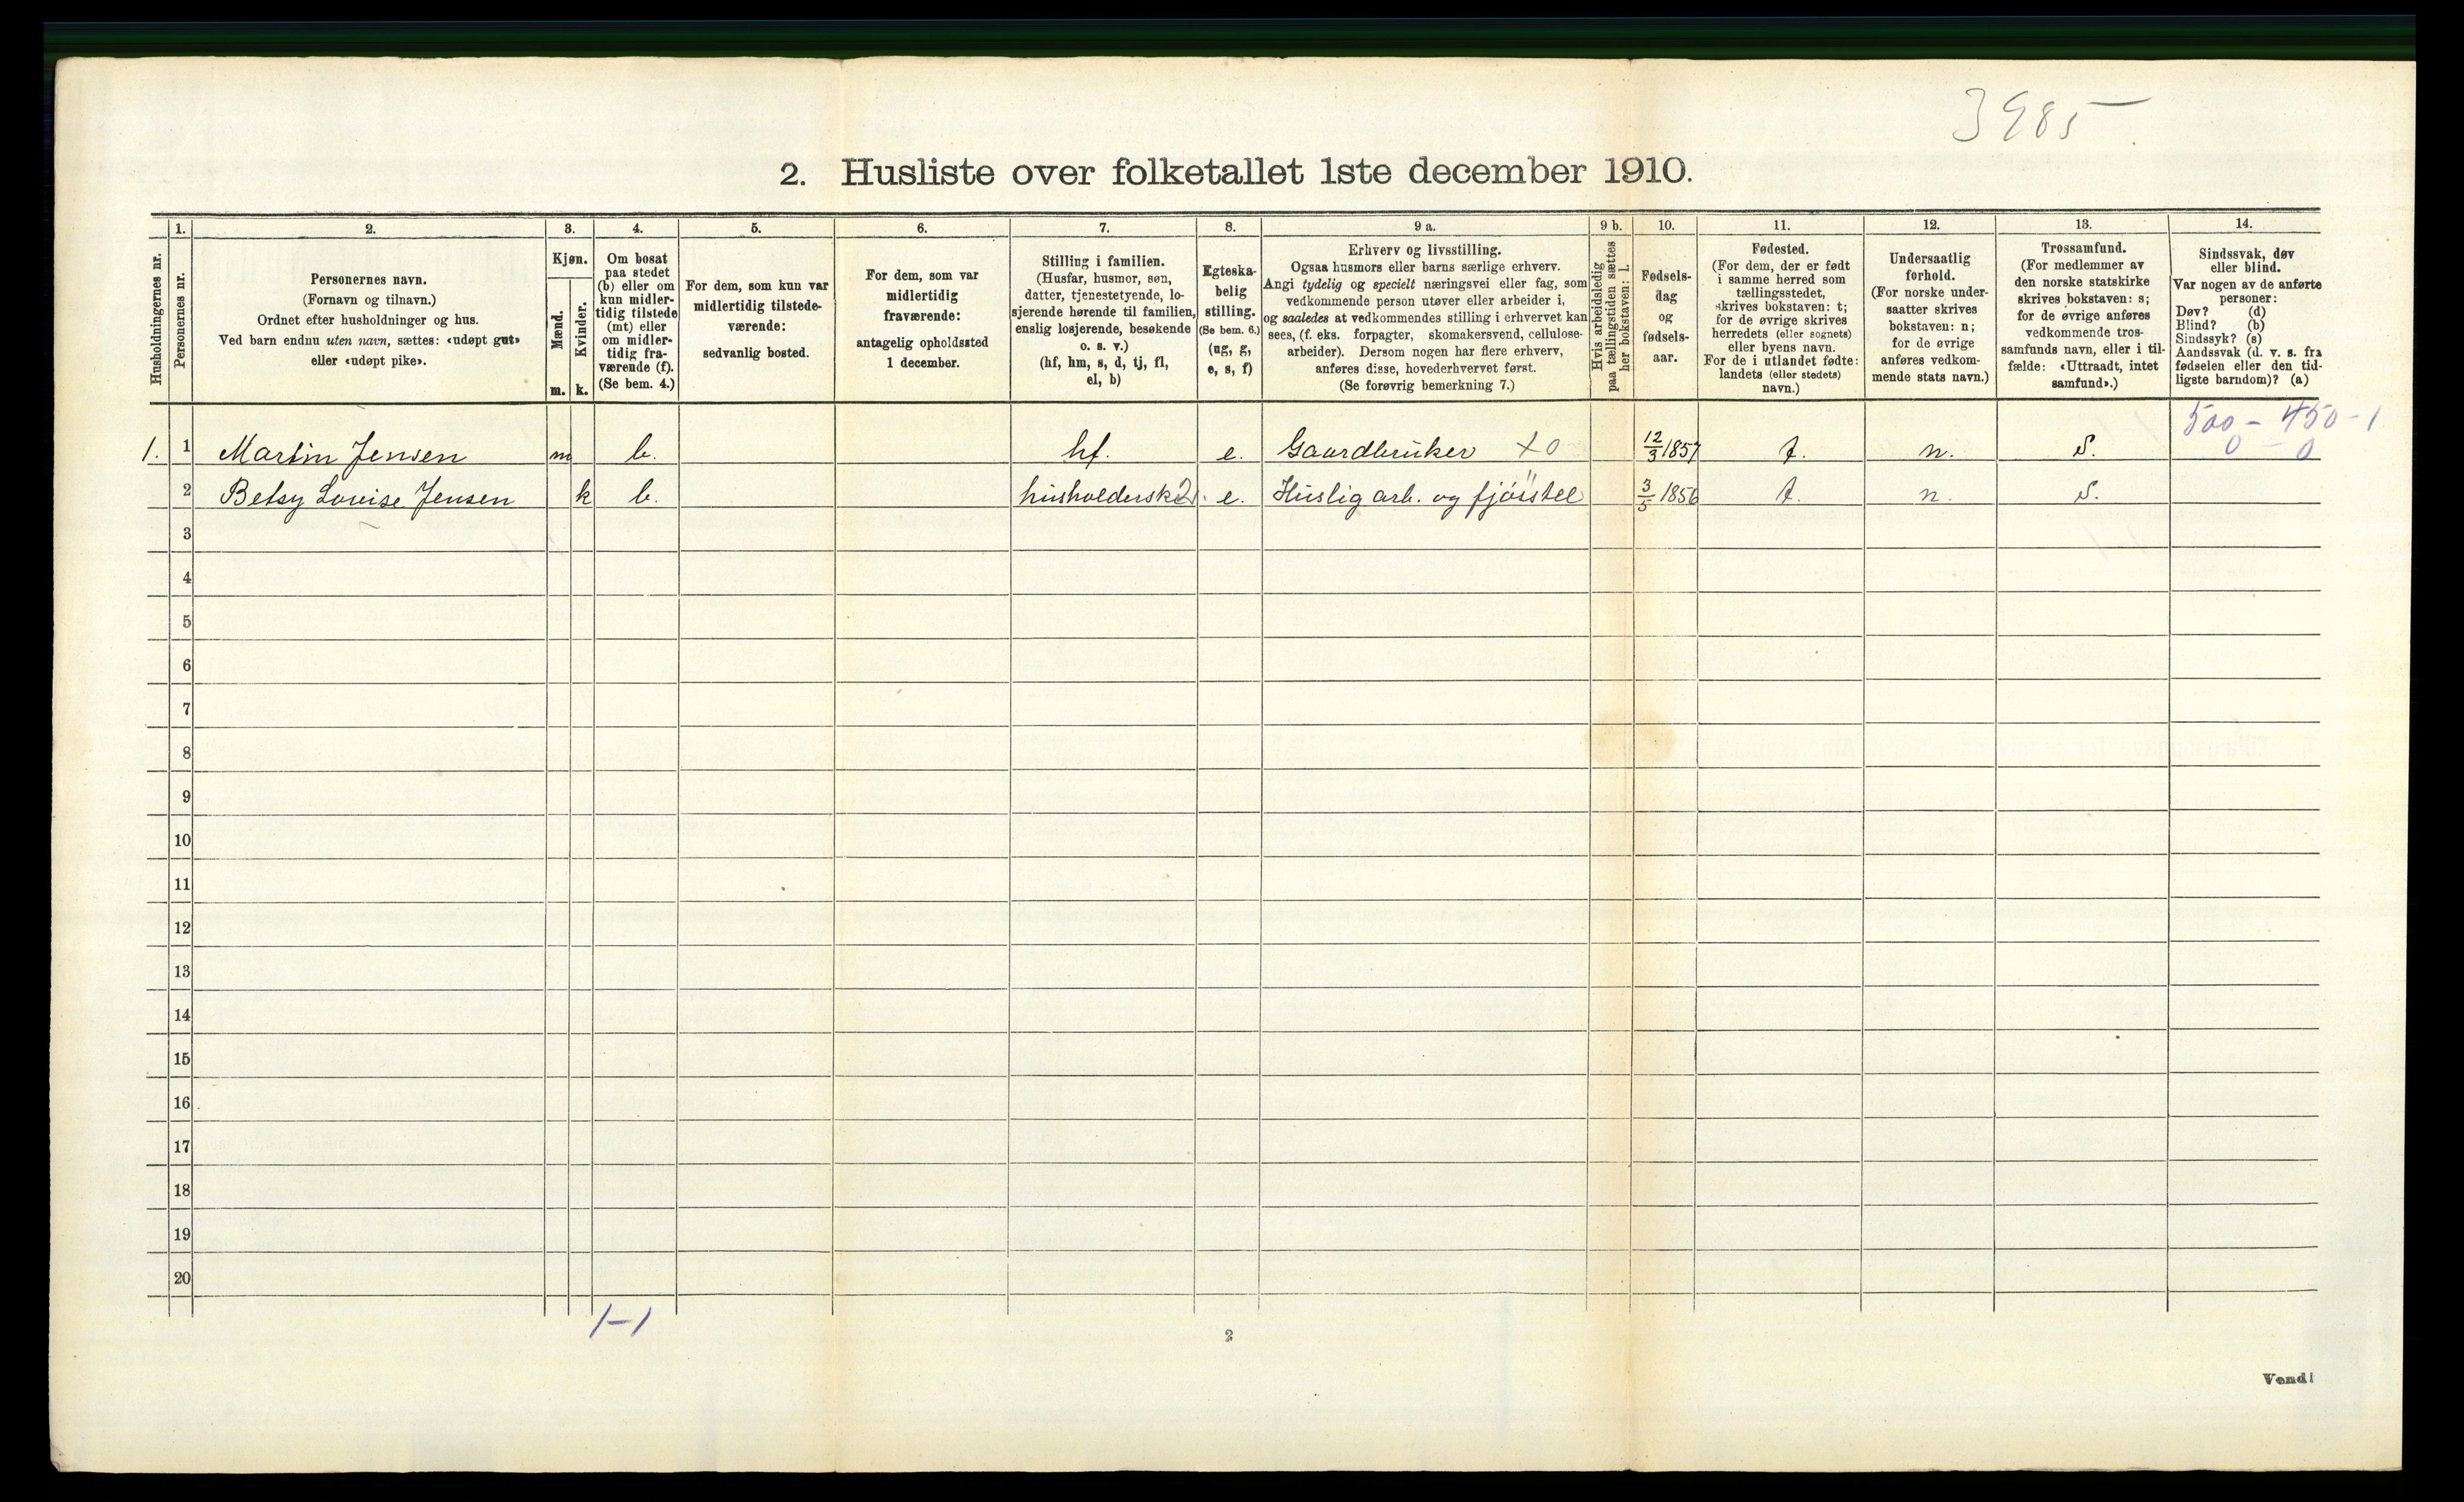 3985
2. Husliste over folketallet 1ste december 1910.
1. 2. 3. 4. 5. 6. 7. 8. 9 a. 9 b. 10. 11. 12. 13. 14.
Husholdningernes nr.
Personernes nr.
Personernes navn.
(Fornavn og tilnavn.)
Ordnet efter husholdninger og hus.
Ved barn endnu uten navn, sættes: «udøpt gut»
eller «udøpt pike».
Kjøn.
Mænd.
m.
Kvinder.
k.
Om bosat
paa stedet
(b) eller om
kun midler-
tidig tilstede
(mt) eller
om midler-
tidig fra-
værende (f).
(Se bem. 4.)
For dem, som kun var
midlertidig tilstede-
værende:
sedvanlig bosted.
For dem, som var
midlertidig
fraværende:
antagelig opholdssted
1 december.
Stilling i familien.
(Husfar, husmor, søn,
datter, tjenestetyende, lo-
sjerende hørende til familien,
enslig losjerende, besøkende
o. s. v.)
(hf, hm, s, d, tj, fl,
el, b)
Egteska-
belig
stilling.
(Se bem. 6.)
(ug, g,
e, s, f)
Erhverv og livsstilling.
Ogsaa husmors eller barns særlige erhverv.
Angi tydelig og specielt næringsvei eller fag, som
vedkommende person utøver eller arbeider i,
og saaledes at vedkommendes stilling i erhvervet kan
sees, (f. eks. forpagter, skomakersvend, cellulose-
arbeider). Dersom nogen har flere erhverv,
anføres disse, hovederhvervet først.
(Se forøvrig bemerkning 7.)
Hvis arbeidsledig
paa tællingstiden sættes
her bokstaven: l.
Fødsels-
dag
og
fødsels-
aar.
Fødested.
(For dem, der er født
i samme herred som
tællingsstedet,
skrives bokstaven: t;
for de øvrige skrives
herredets (eller sognets)
eller byens navn.
For de i utlandet fødte:
landets (eller stedets)
navn.)
Undersaatlig
forhold.
(For norske under-
saatter skrives
bokstaven: n;
for de øvrige
anføres vedkom-
mende stats navn.)
Trossamfund.
(For medlemmer av
den norske statskirke
skrives bokstaven: s;
for de øvrige anføres
vedkommende tros-
samfunds navn, eller i til-
fælde: «Uttraadt, intet
samfund».)
Sindssvak, døv
eller blind.
Var nogen av de anførte
personer:
Døv? (d)
Blind? (b)
Sindssyk? (s)
Aandssvak (d. v. s. fra
fødselen eller den tid-
ligste barndom)? (a)
500 - 450 - 1
0 - 0
1. 1 Martin Jensen m b. hf. e. Gaardbruker X0 12/3 1857 t. n. S.
2 Betsy Lovise Jensen k b. husholdersk e. Huslig arb. og fjøsstel 3/5 1856 t. n. S.
3
4
5
6
7
8
9
10
11
12
13
14
15
16
17
18
19
20
1-1
2
Vend!